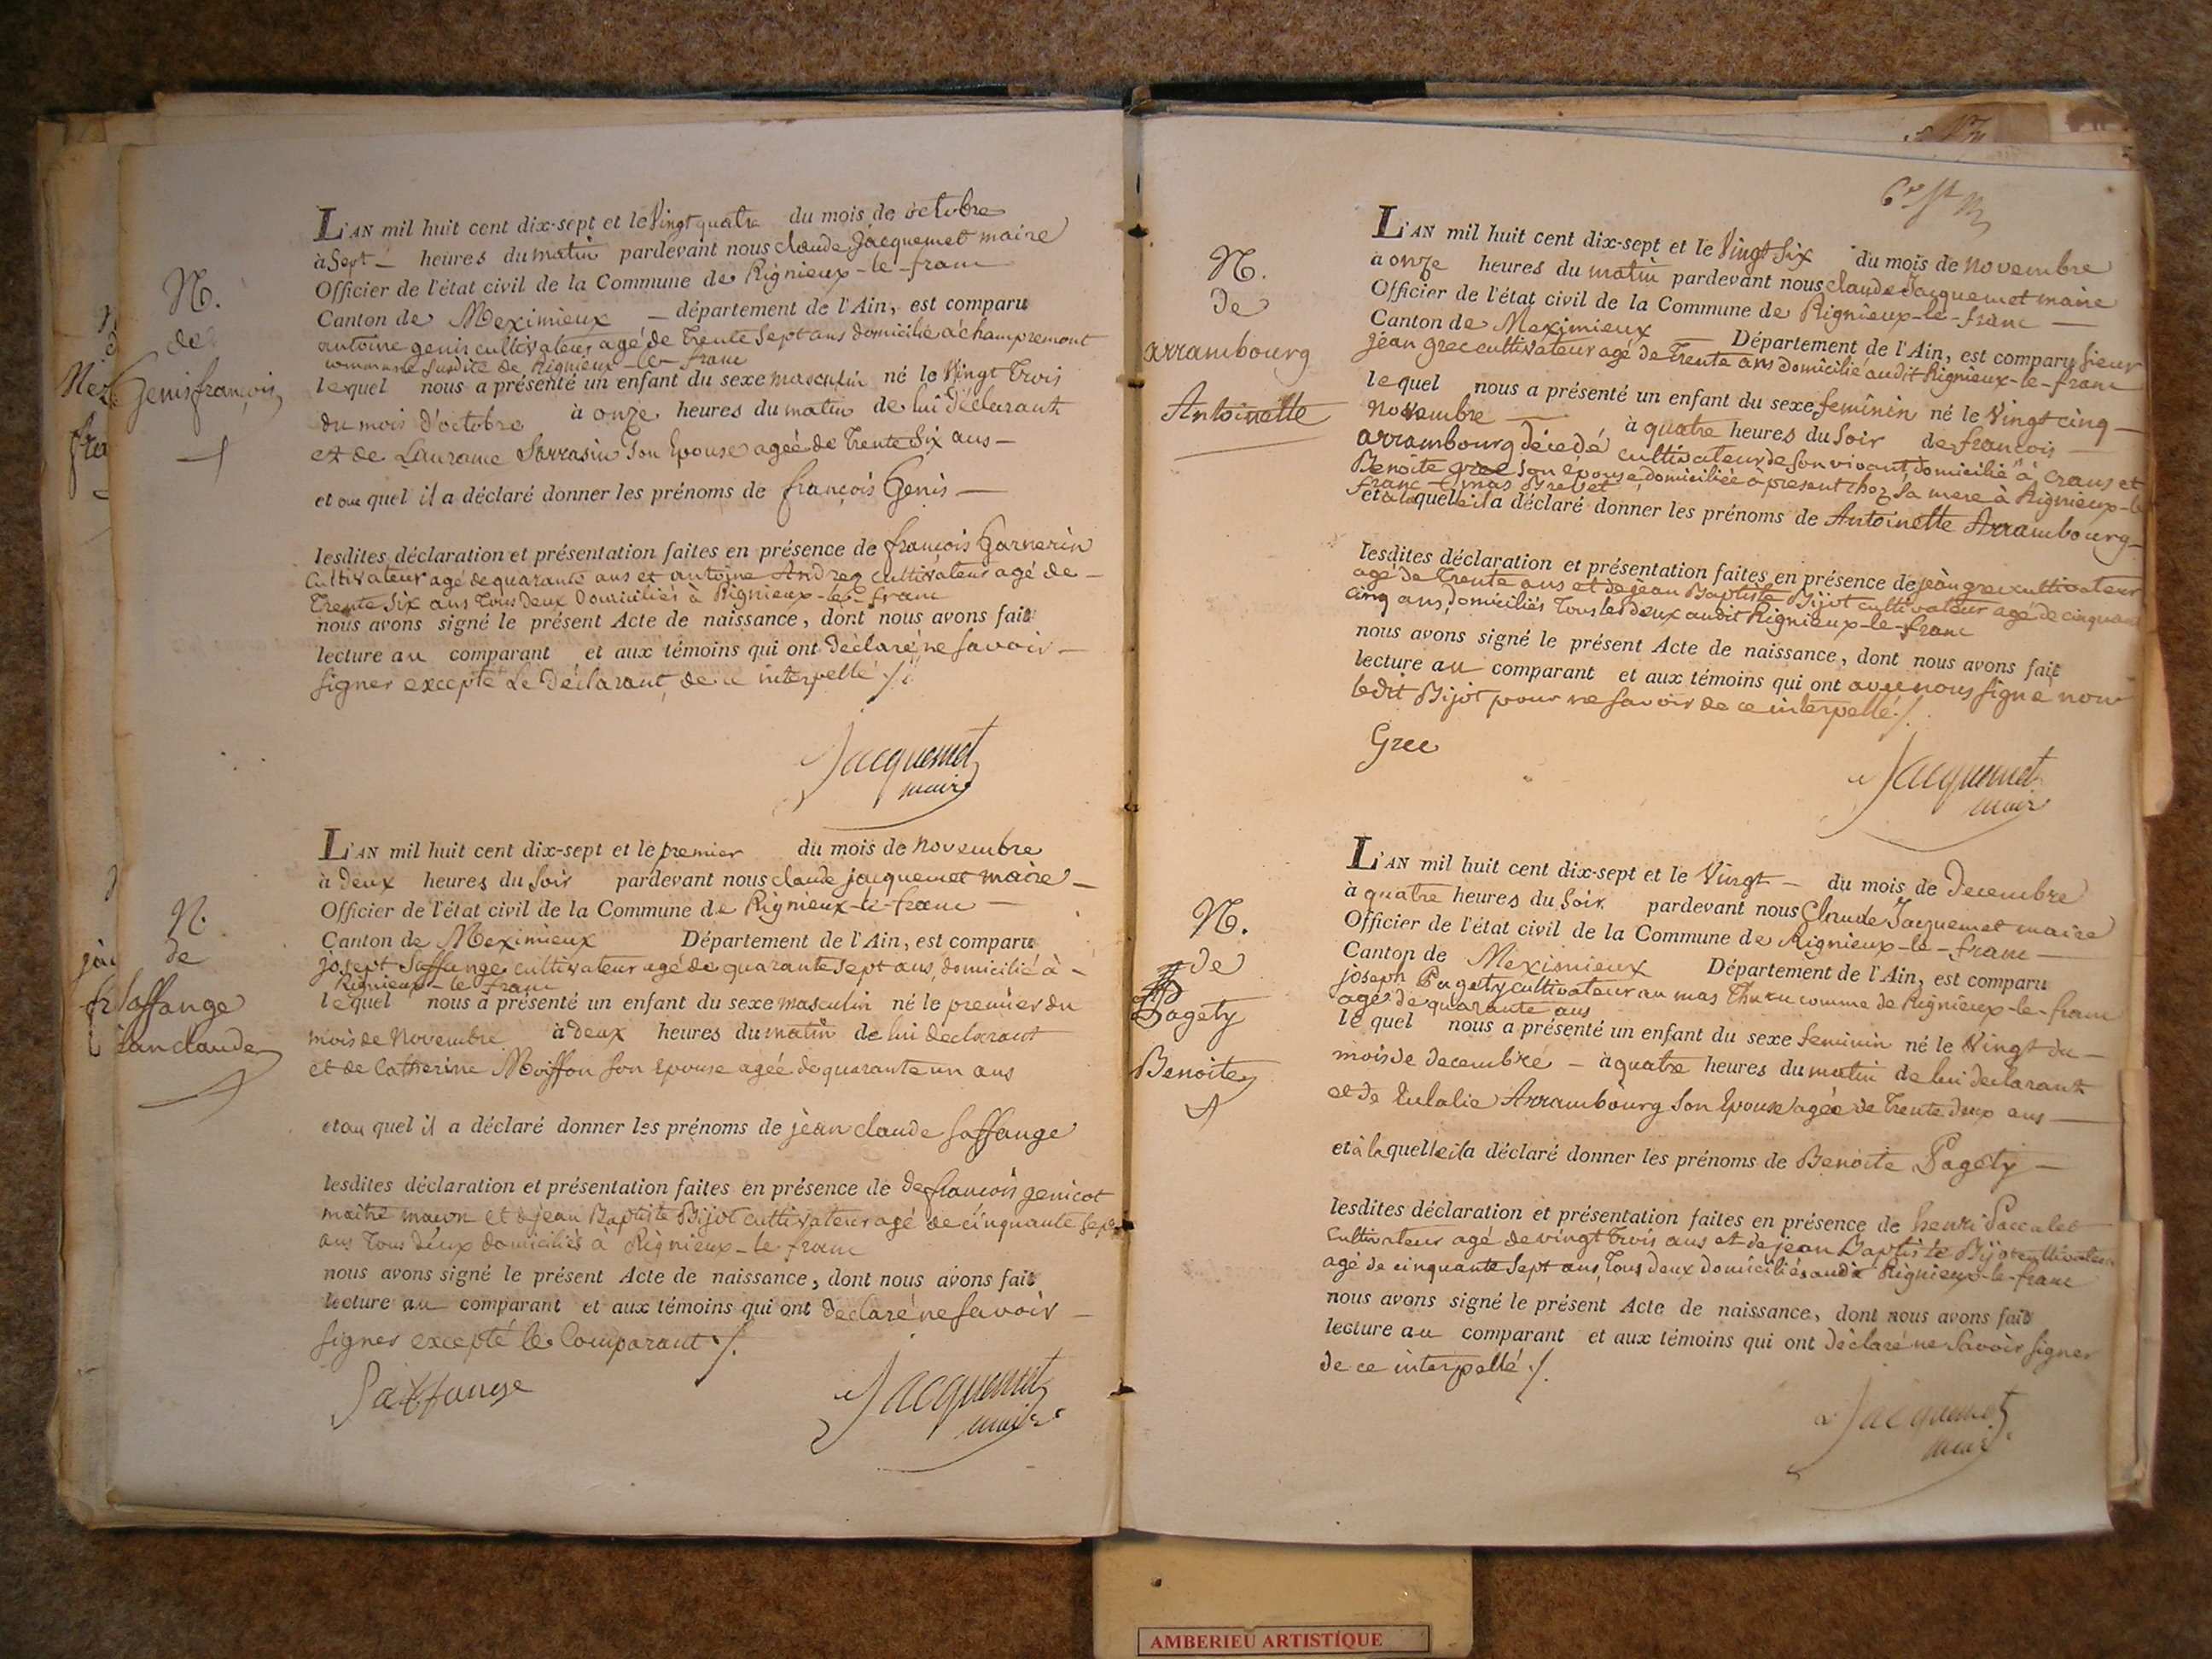 N.
de
Genis françois
L'AN mil huit cent dix-sept et le Vingt quatre du mois de octobre
à Sept heures du matin pardevant nous claude Jacquemet maire
Officier de l'état civil de la Commune de Rignieux-le-franc
Canton de Meximieux département de l'Ain, est comparu
antoine genis cultivateur agé de Trente Sept ans domicilié à champremont
commune Susdite de Rignieux-le-franc
lequel nous a présenté un enfant du sexe masculin né le Vingt Trois
du mois d'octobre à onze heures du matin de lui déclarant
et de Sarrasin Son Epouse agée de Trente Six ans
et au quel il a déclaré donner les prénoms de françois Genis
lesdites déclaration et présentation faites en présence de françois Garnerin
Cultivateur agé de quarante ans et antoine cultivateur agé de
Trente Six ans Tous deux Domiciliés à Rignieux-le-franc
nous avons signé le présent Acte de naissance, dont nous avons fait
lecture au comparant et aux témoins qui ont Déclaré ne Savoir
signer excepté Le Déclarant de ce interpellé ./.
Jacquemet
maire
N.
de
Saffange
jean claude
L'AN mil huit cent dix-sept et le premier du mois de novembre
à deux heures du Soir pardevant nous claude jacquemet maire
Officier de l'état civil de la Commune de Rignieux-le-franc
Canton de Meximieux Département de l'Ain, est comparu
josept Saffange cultivateur agé de quarante sept ans, domicilié à
Rignieux-le franc
lequel nous a présenté un enfant du sexe masculin né le premier du
mois de Novembre à deux heures du matin de lui declarant
et de Catherine Moiffon son Epouse agée de quarante un ans
et au quel il a déclaré donner les prénoms de jean claude Saffange
lesdites déclaration et présentation faites en présence de de françois genicot
maitre et de jean Baptiste Bijot cultivateur agé de cinquante Sept
ans Tous deux domiciliés à Rignieux-le franc
nous avons signé le présent Acte de naissance, dont nous avons fait
lecture au comparant et aux témoins qui ont declaré ne Savoir
signer excepté le Comparant ./.
Saffange
Jacquemet
maire
N.
de
arrambourg
Antoinette
L'AN mil huit cent dix-sept et le Vingt Six du mois de novembre
à onze heures du matin pardevant nous claude Jacquemet maire
Officier de l'état civil de la Commune de Rignieux-le-franc
Canton de Meximieux Département de l'Ain, est comparu sieur
jean grec cultivateur agé de Trente ans domicilié audit Rignieux-le-franc
lequel nous a présenté un enfant du sexe feminin né le Vingt cinq
novembre à quatre heures du Soir de françois
arrambourg décedé cultivateur de son vivant, domicilié à Crans et
Benoite grec son épouse, domiciliée à present chez Sa mere à Rignieux-le
franc
et à laquelle il a déclaré donner les prénoms de Antoinette Arrambourg
lesdites déclaration et présentation faites en présence de jean grec cultivateur
agé de Trente ans et de jean Baptiste Bijot cultivateur agé de cinquante
cinq ans, domiciliés Tous les deux audit Rignieux-le-franc
nous avons signé le présent Acte de naissance, dont nous avons fait
lecture au comparant et aux témoins qui ont avec nous signé non
ledit Bijot pour ne savoir de ce interpellé ./.
Grec
Jacquemet
maire
N.
de
Pagety
Benoite
L'AN mil huit cent dix-sept et le Vingt du mois de Decembre
à quatre heures du Soir pardevant nous Claude Jacquemet maire
Officier de l'état civil de la Commune de Rignieux-le-franc
Canton de Meximieux Département de l'Ain, est comparu
joseph Pagety cultivateur au mas comme de Rignieux-le-franc
agé de quarante ans
lequel nous a présenté un enfant du sexe feminin né le Vingt du
mois de decembre à quatre heures du matin de lui declarant
et de Eulalie Arrambourg Son Epouse agée de Trente deux ans
et à laquelle il a déclaré donner les prénoms de Benoite Pagety
lesdites déclaration et présentation faites en présence de henri Paccalet
cultivateur agé de vingt Trois ans et de jean Baptiste Bijot cultivateur
agé de cinquante Sept ans, Tous deux domiciliés audit Rignieux-le-franc
nous avons signé le présent Acte de naissance, dont nous avons fait
lecture au comparant et aux témoins qui ont déclaré ne Savoir signer
de ce interpellé ./.
Jacquemet
maire
AMBERIEU ARTISTIQUE